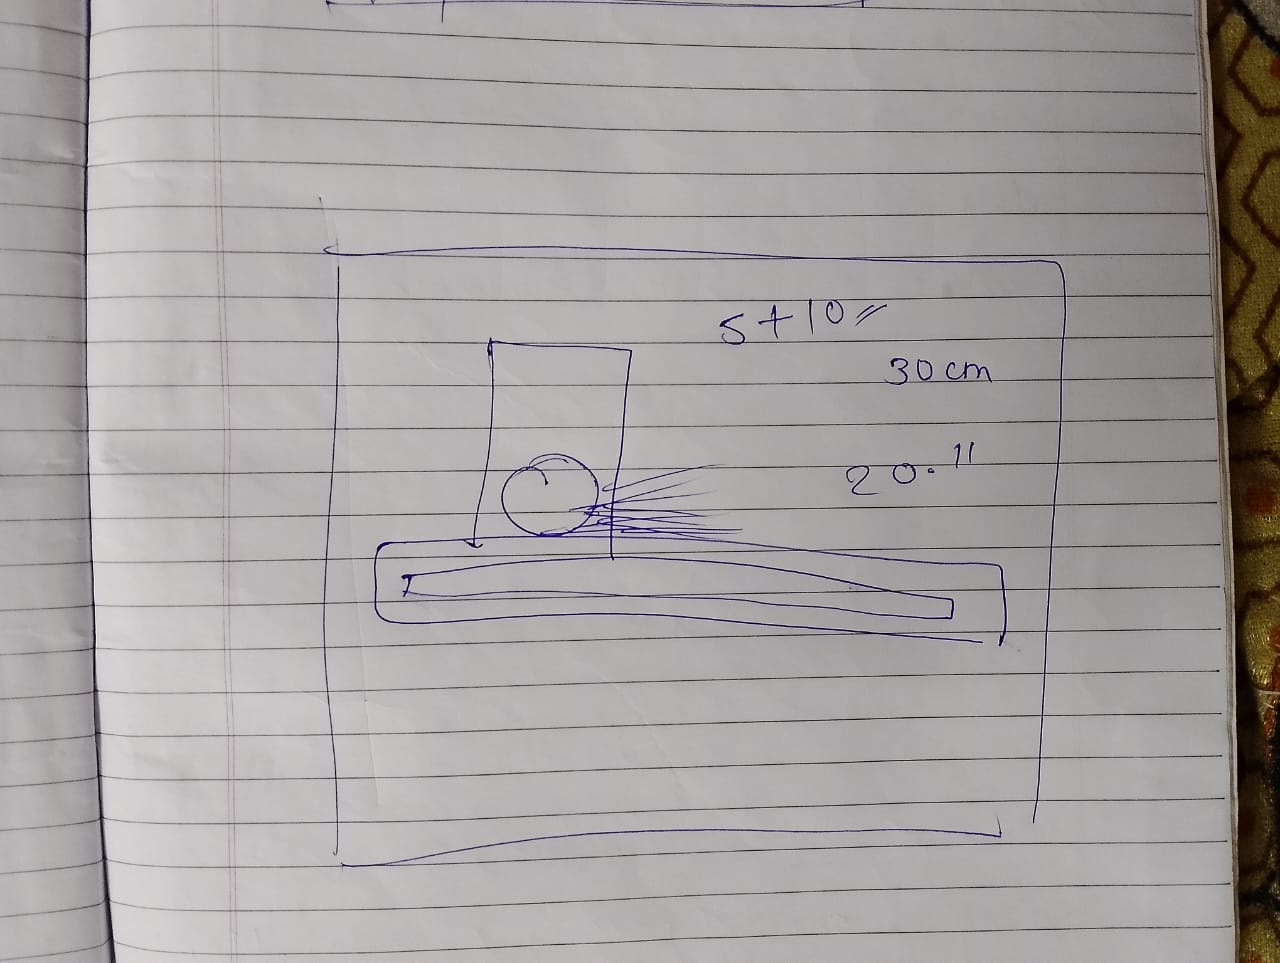 5+10=
30 cm
20."